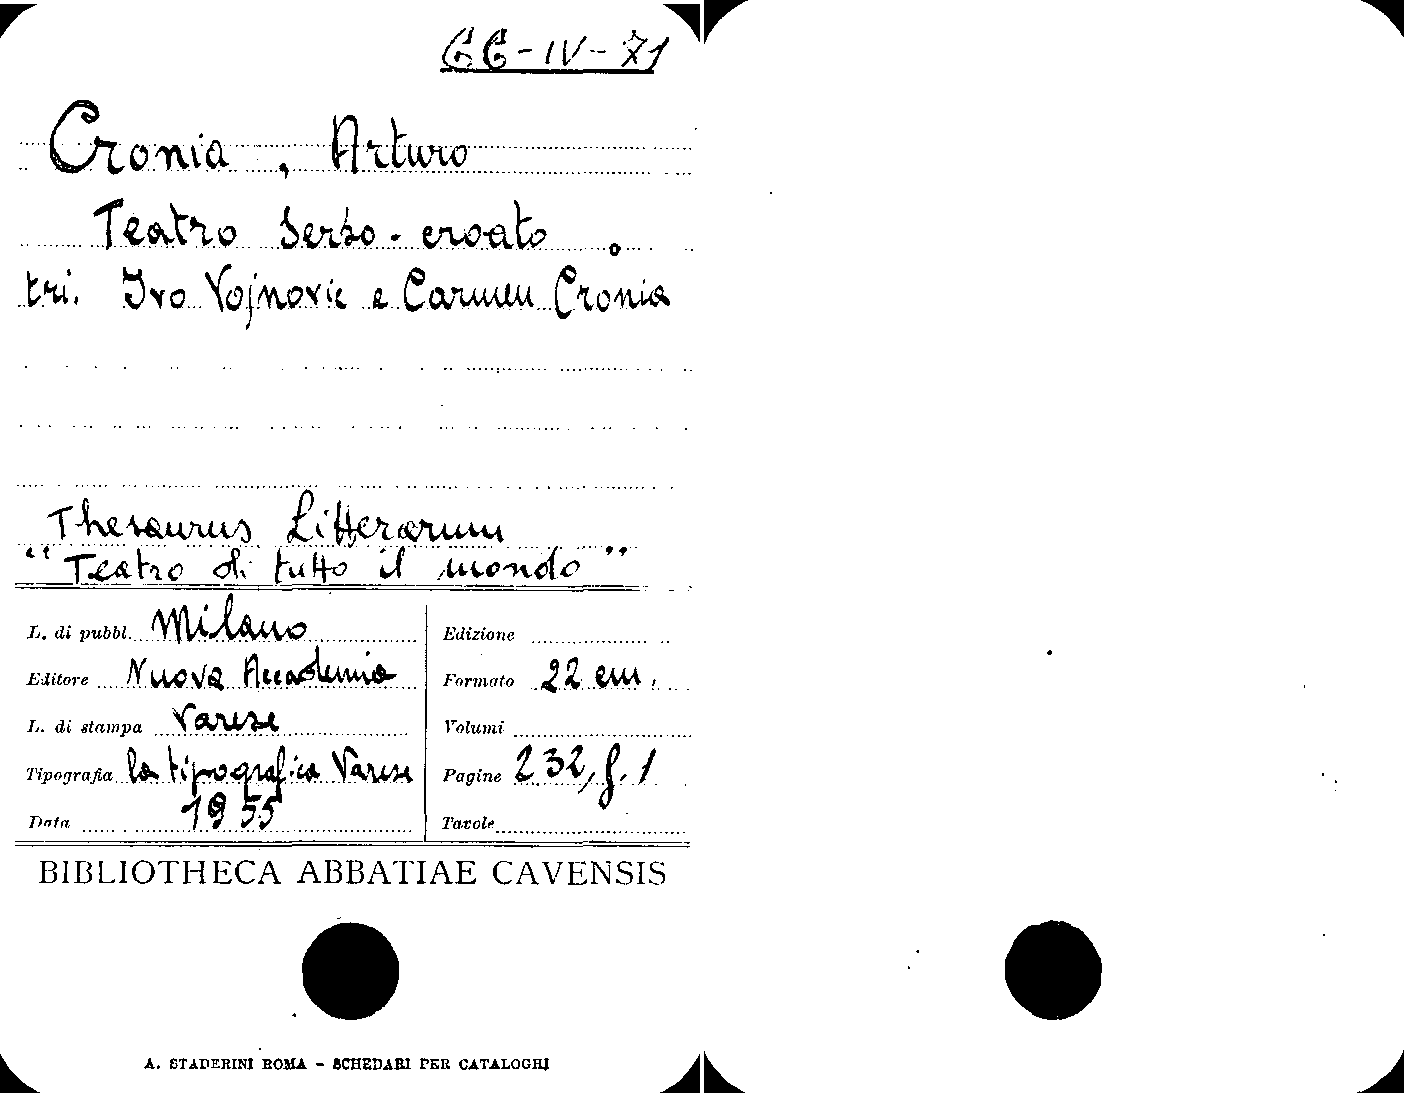 CC-IV-71
Cronia, Arturo
Teatro serbo-croato.
tri. Ivo Vojnovic e Carmen Cronia
Thesaurus Litterarum
"Teatro di tutto il mondo"
L. di pubbl. Milano
Editore Nuova Accademia
L. di stampa Varese
Tipografia la tipografica Varese
Data 1955
Edizione
Formato 22 cm.
Volumi
Pagine 232, f. 1
Tavole
BIBLIOTHECA ABBATIAE CAVENSIS
A. STADERINI ROMA - SCHEDARI PER CATALOGHI